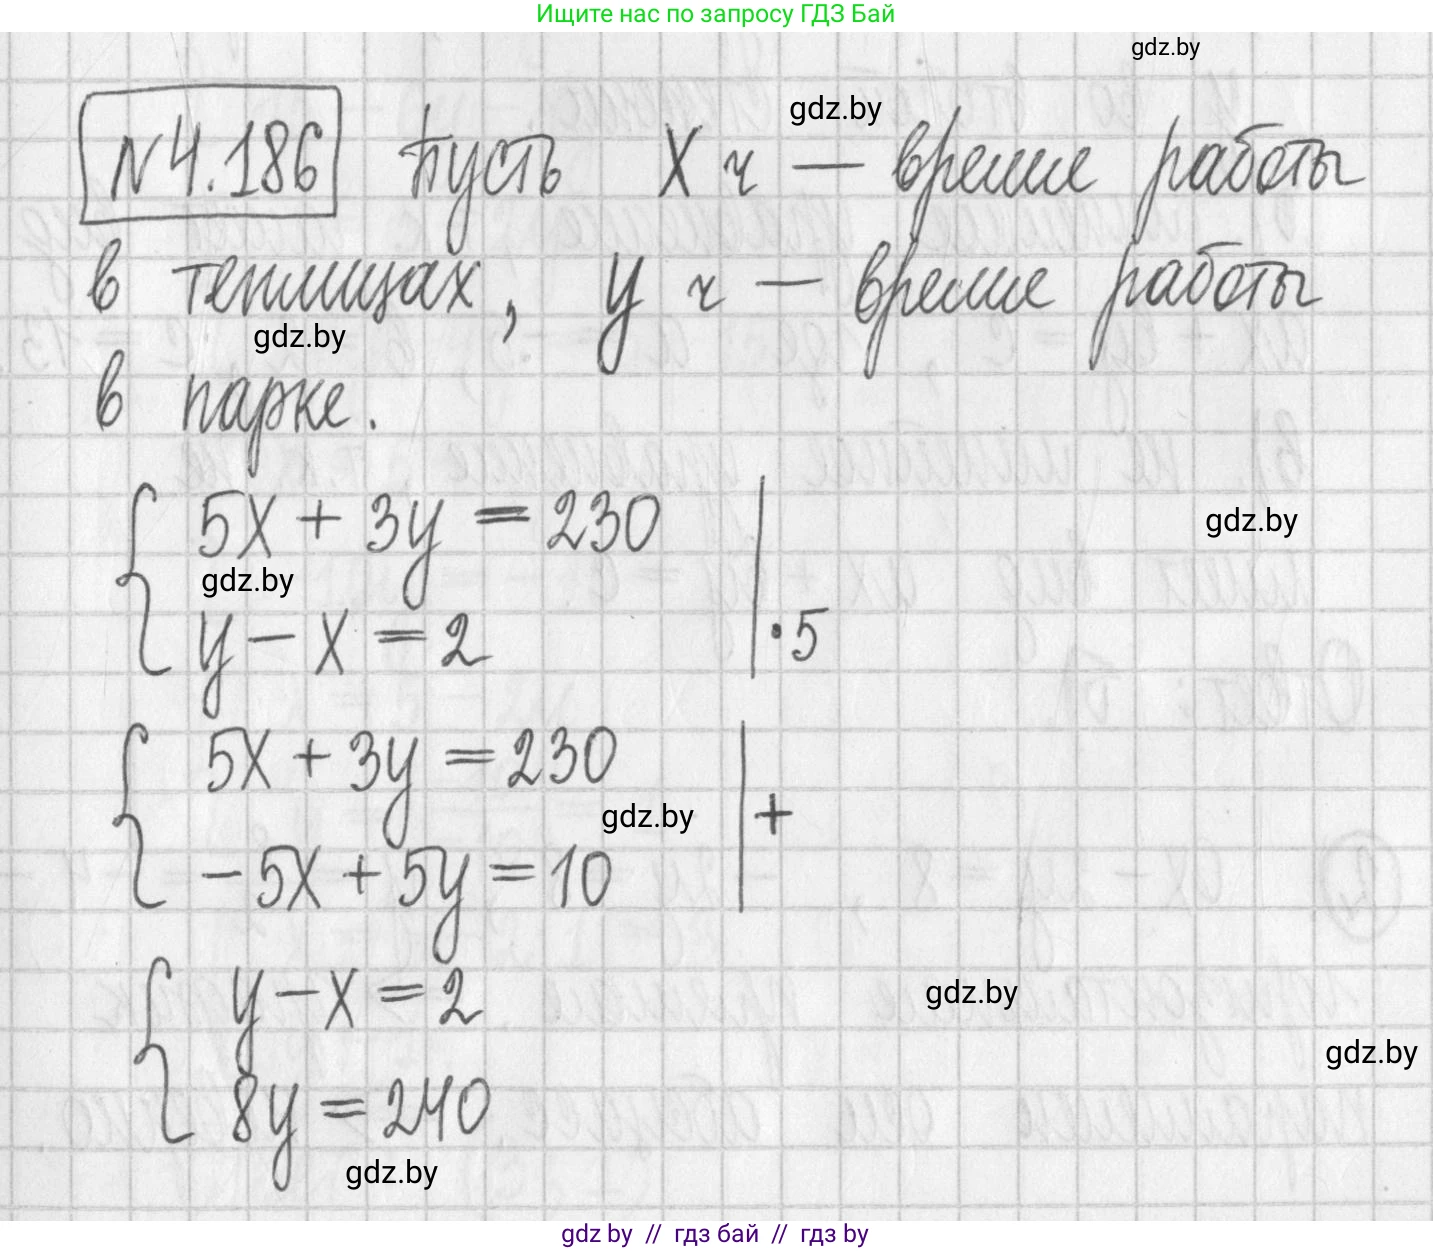 Ищите нас по запросу ГДЗ Бай
gdz.by
gdz.by
№4.186 Пусть x ч — время работы
в теплицах, y ч — время работы
gdz.by
в парке.
5x + 3y = 230
gdz.by
gdz.by
y − x = 2 | ·5
5x + 3y = 230
gdz.by
+
−5x + 5y = 10
y − x = 2
gdz.by
gdz.by
8y = 240
gdz.by
gdz.by // гдз бай // гдз by